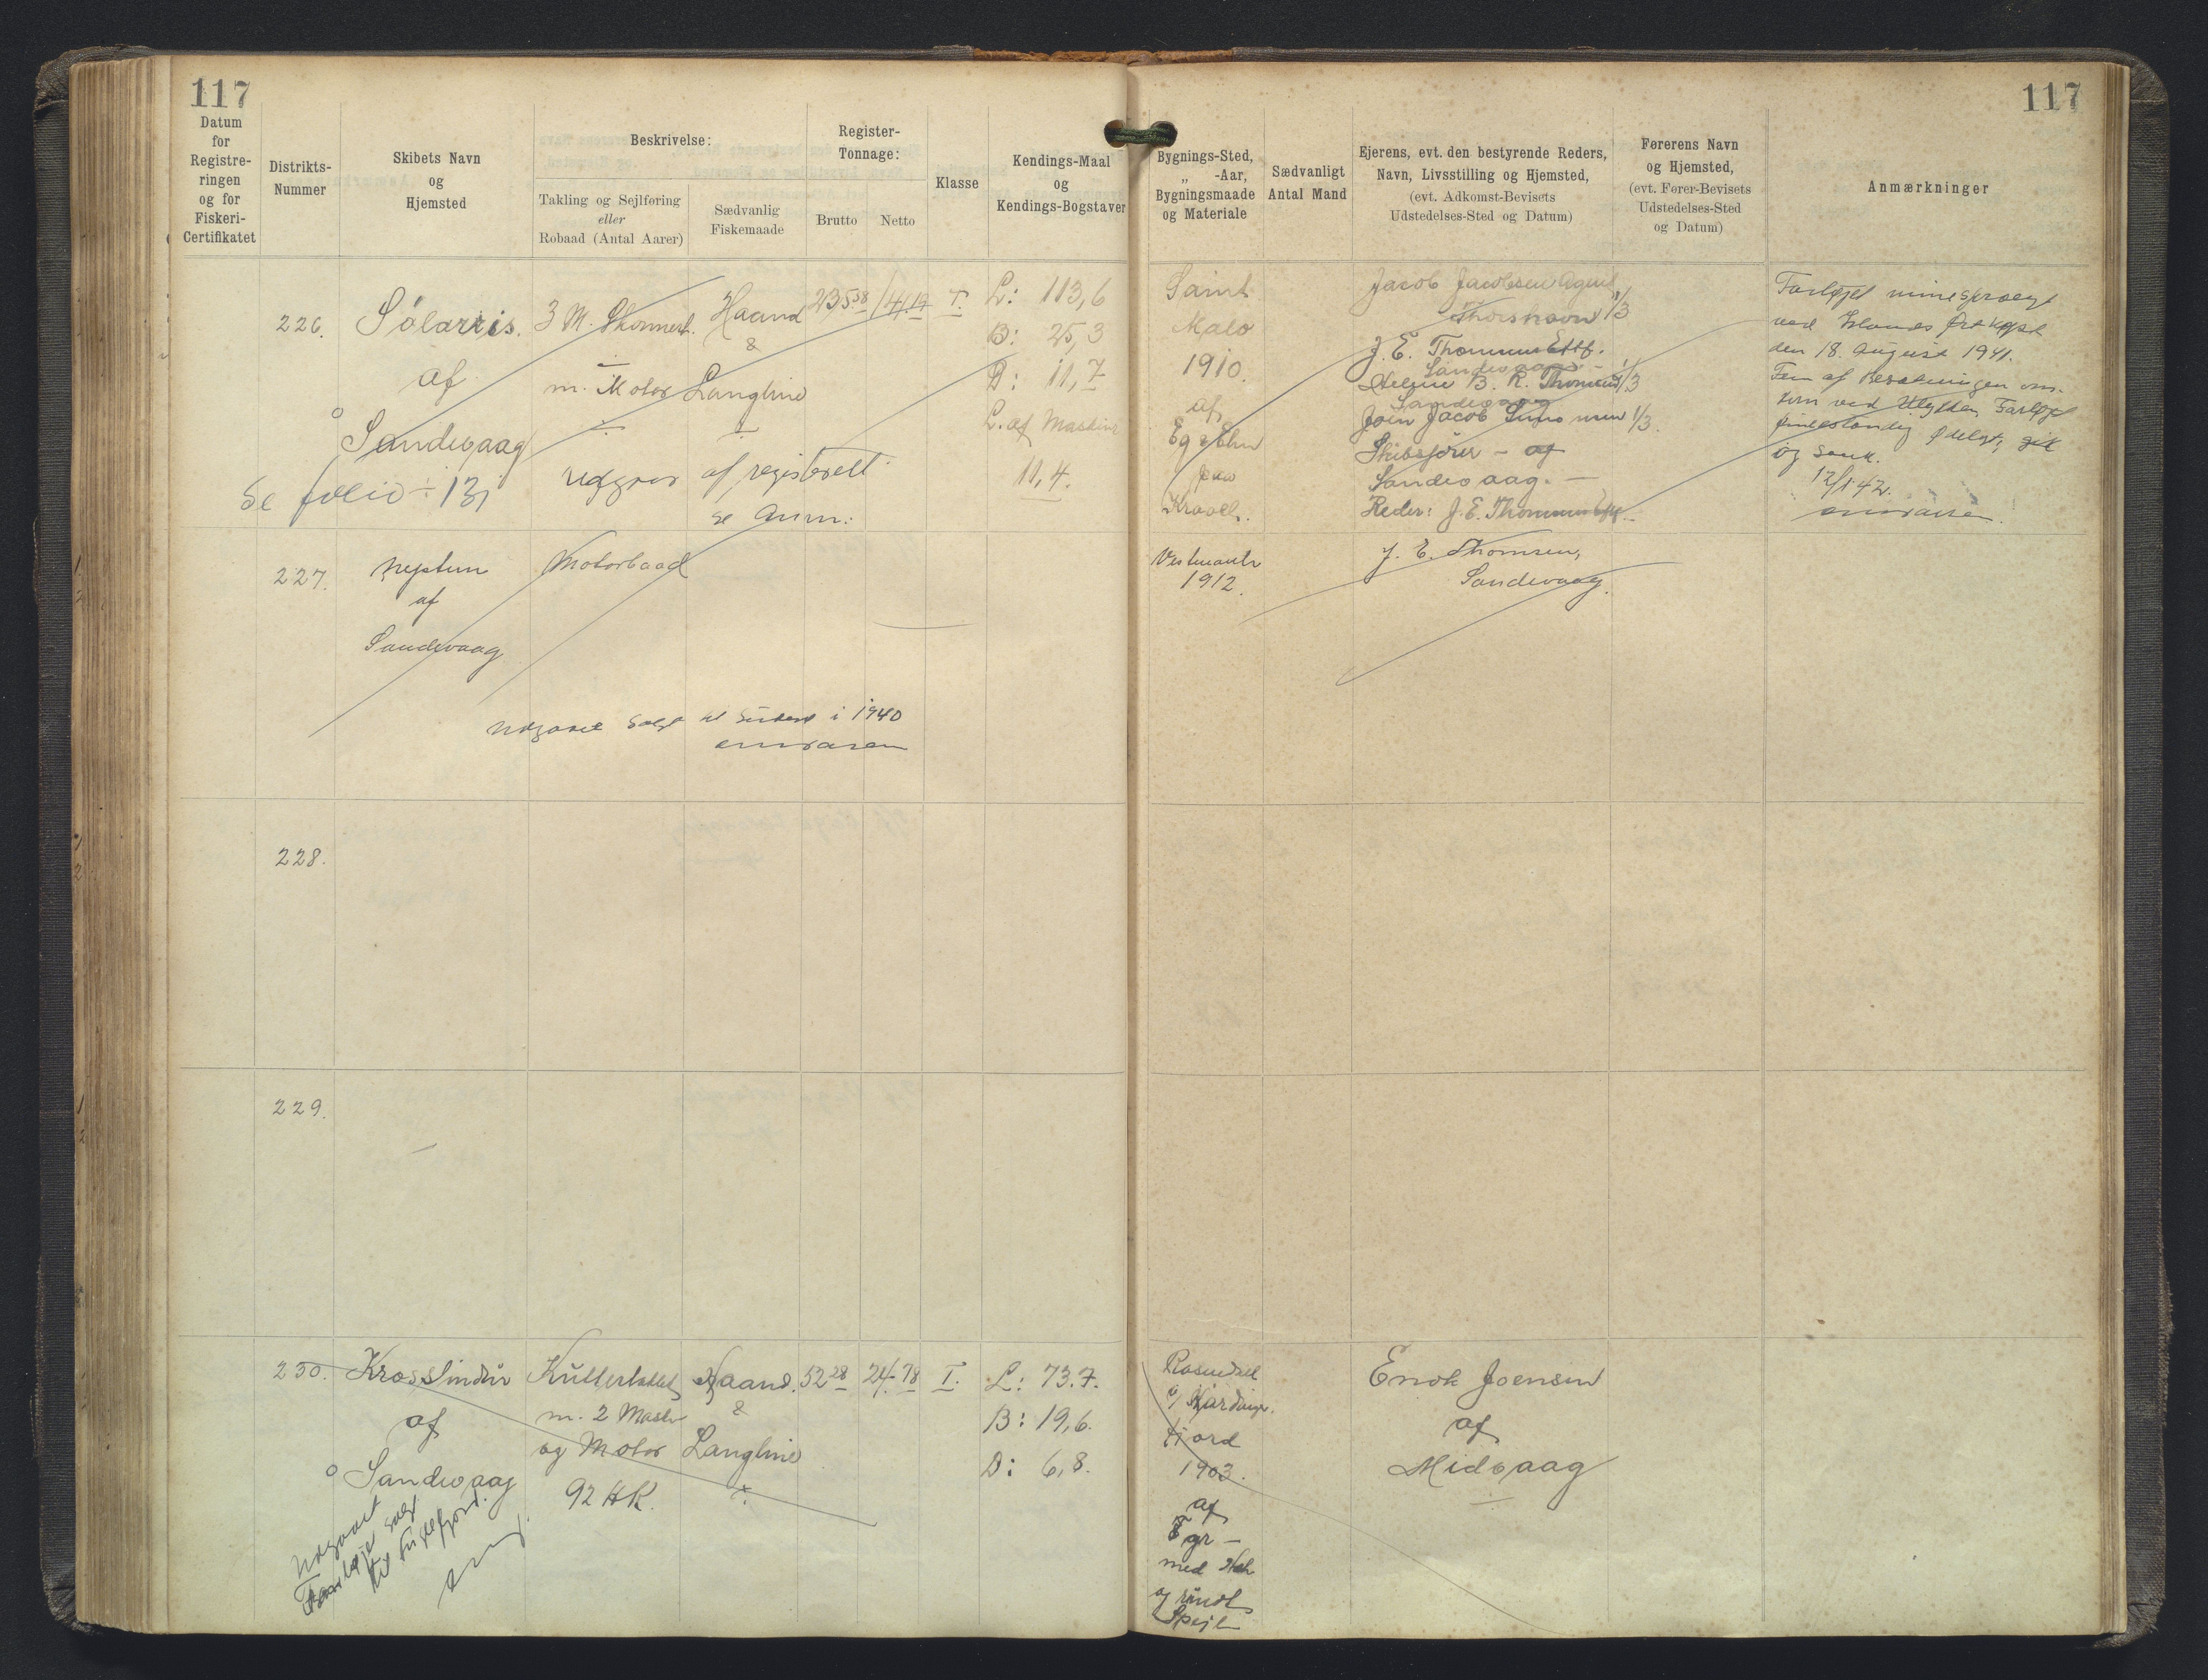 117
117
Datum
for
Registre-
ringen
og for
Fiskeri-
Certifikatet
Distrikts-
Nummer
Skibets Navn
og
Hjemsted
Beskrivelse:
Takling og Sejlføring
eller
Robaad (Antal Aarer)
Sædvanlig
Fiskemaade
Register-
Tonnage:
Brutto
Netto
Klasse
Kendings-Maal
og
Kendings-Bogstaver
Bygnings-Sted,
„ -Aar,
Bygningsmaade
og Materiale
Sædvanligt
Antal Mand
Ejerens, evt. den bestyrende Reders,
Navn, Livsstilling og Hjemsted,
(evt. Adkomst-Bevisets
Udstedelses-Sted og Datum)
Førerens Navn
og Hjemsted,
(evt. Fører-Bevisets
Udstedelses-Sted
og Datum)
Anmærkninger
226.
Sólarris.
af
Sandevaag
Se folio ÷ 131
3 M. Skonnert.
m. Motor
Haand
&
Langline
udgaar af registeret
se Anm:
235 58
I.
L: 113,6
B: 25,3
D: 11,7
L. af Maskinr
11,4.
Saint
Malo
1910.
af
Eg & Elm
paa
Kravel.
Jacob Jacobsen Agent
Thorshavn 1/3
J. E. Thomsens Eftf.
Sandevaag
Helene B. R. Thomsen 1/3
Sandevaag
Join Jacob Simonsen 1/3.
Skibsfører - af
Sandevaag. -
Reder: J. E. Thomsens Eftf.
Fartøjet minesprængt
ved Islands Østkyst
den 18. August 1941.
Fem af Besætningen om-
kom ved Ulykken, Fartøjet
fuldstændig ødelagt, gik
og sank.
12/1 42.
227.
Neptun
af
Sandevaag
Motorbaad
Vestmanh
1912.
J. E. Thomsen,
Sandevaag.
Udgaaet Solgt til i 1940
228.
229.
230.
Krosslindur
af
Sandevaag
Kuttertaklet
m. 2 Master
og Motor
92 HK.
Haand.
&
Langline
52 28
24.78
I.
L: 73.7.
B: 19,6.
D: 6,8.
Rosendal
i Hardanger.
fjord
1903.
af
Fyr -
med
og rundt
Spejl
Enok Joensen
af
Midvaag
Udgaaet
Fartøjet solgt
til Fuglefjord.